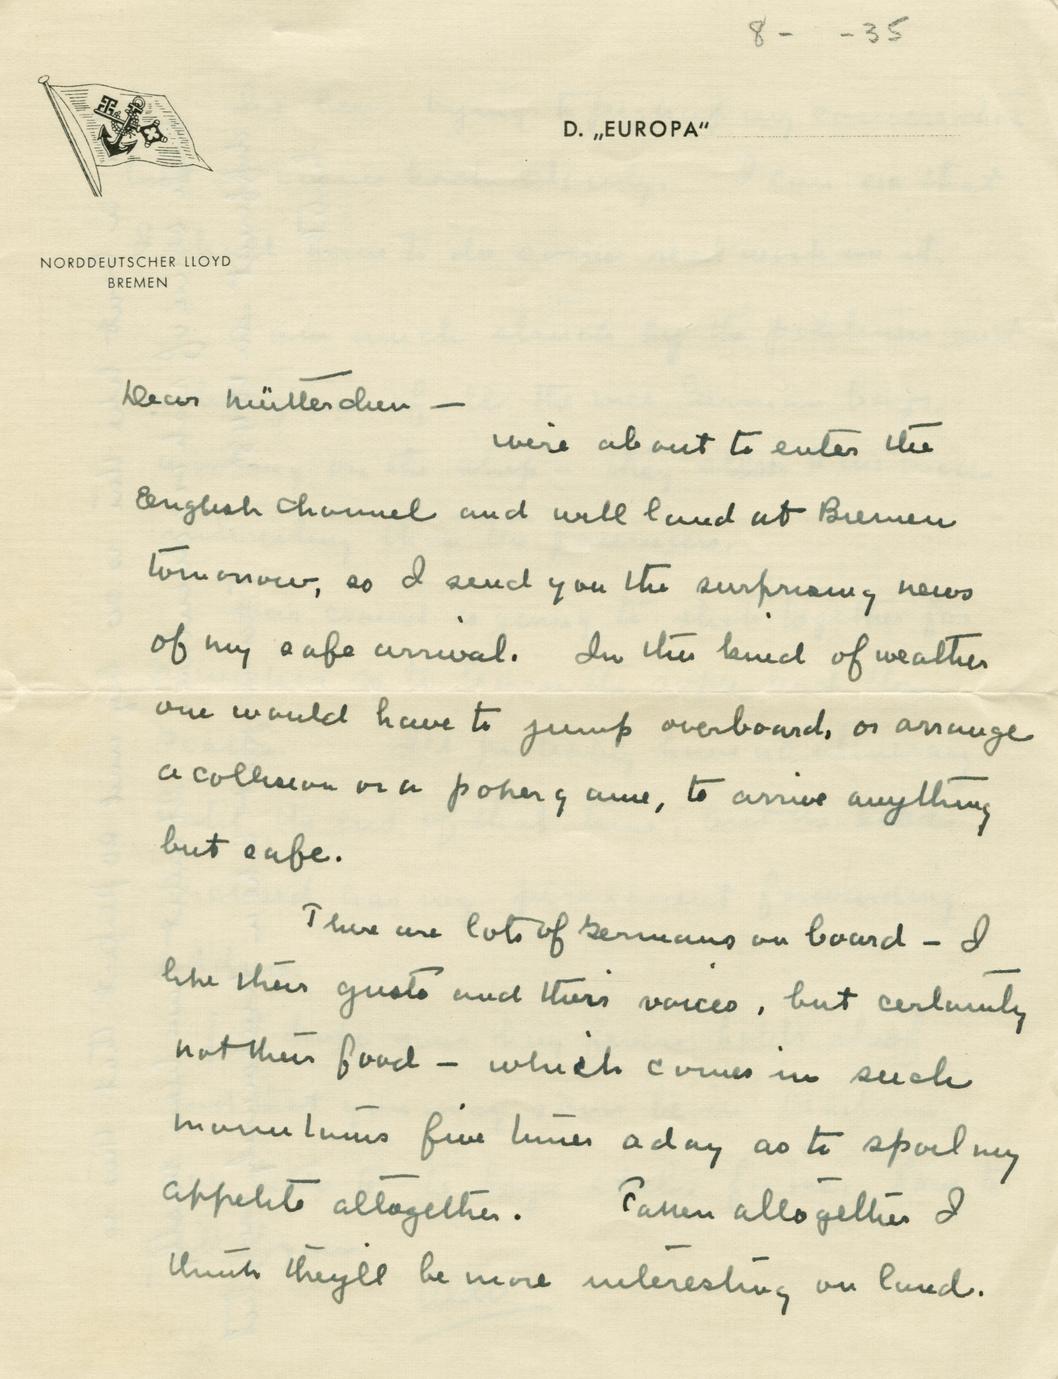 8-   -35
D. „EUROPA"
NORDDEUTSCHER LLOYD
BREMEN
Dear Mütterchen —
we're about to enter the
English Channel and will land at Bremen
tomorrow, so I send you the surprising news
of my safe arrival. In this kind of weather
one would have to jump overboard, or arrange
a collision or a poker game, to arrive anything
but safe.
There are lots of Germans on board – I
like their gusto and their voices, but certainly
not their food – which comes in such
mountains five times a day as to spoil my
appetite altogether. Taken altogether I
think they'll be more interesting on land.